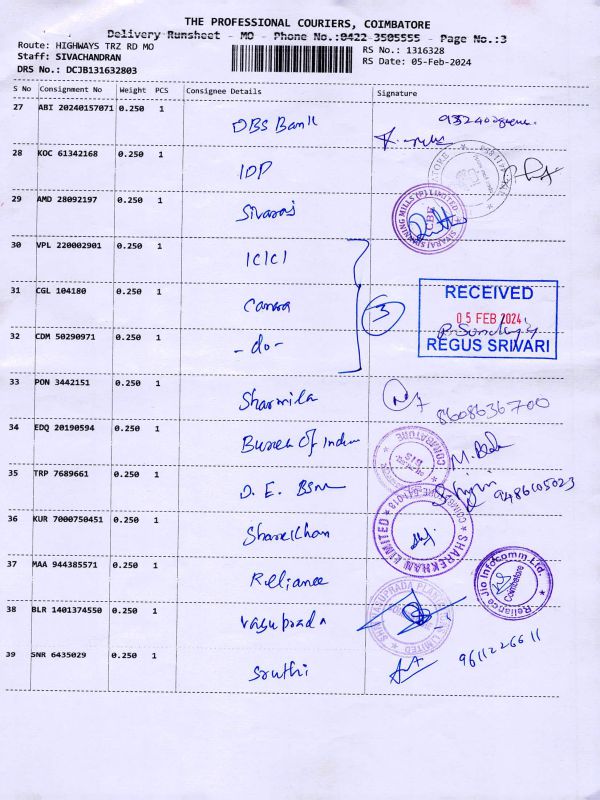 THE PROFESSIONAL COURIERS, COIMBATORE
Delivery Runsheet - MO - Phone No.:0422 3505555 - Page No.:3
Route: HIGHWAYS TRZ RD MO
RS No.: 1316328
Staff: SIVACHANDRAN
RS Date: 05-Feb-2024
DRS No.: DCJB131632803
S No Consignment No Weight PCS Consignee Details Signature
27 ABI 20240157071 0.250 1 DBS Bank
28 KOC 61342168 0.250 1 IOP
29 AMD 28092197 0.250 1 Sivaraj
SIVARAJ SPINNING MILLS (P) LIMITED
CBE
30 VPL 220002901 0.250 1 ICICI
31 CGL 104180 0.250 1 Canara
3
RECEIVED
05 FEB 2024
REGUS SRIVARI
32 CDM 50290971 0.250 1 -do-
33 PON 3442151 0.250 1 Sharmila
8608636700
34 EDQ 20190594 0.250 1 Bureau Of Indian
COIMBATORE
35 TRP 7689661 0.250 1 D.E. BSNL
9486105023
36 KUR 7000750451 0.250 1 Sharekhan
SHAREKHAN LIMITED
COIMBATORE-641018
37 MAA 944385571 0.250 1 Reliance
Reliance Jio Infocomm Ltd.
Coimbatore
38 BLR 1401374550 0.250 1 Vasuprada
39 SNR 6435029 0.250 1 Sruthi
9611226611